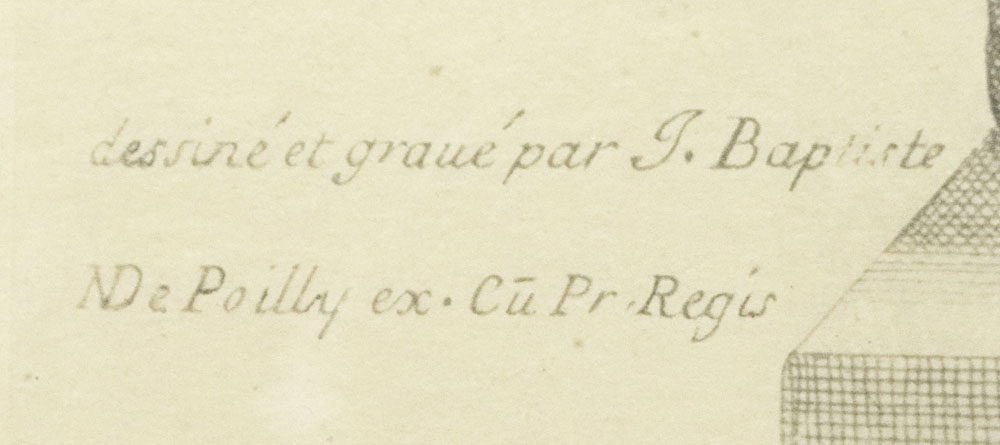 dessiné et graué par J. Baptiste
NDe Poilly ex. Cū Pr. Regis